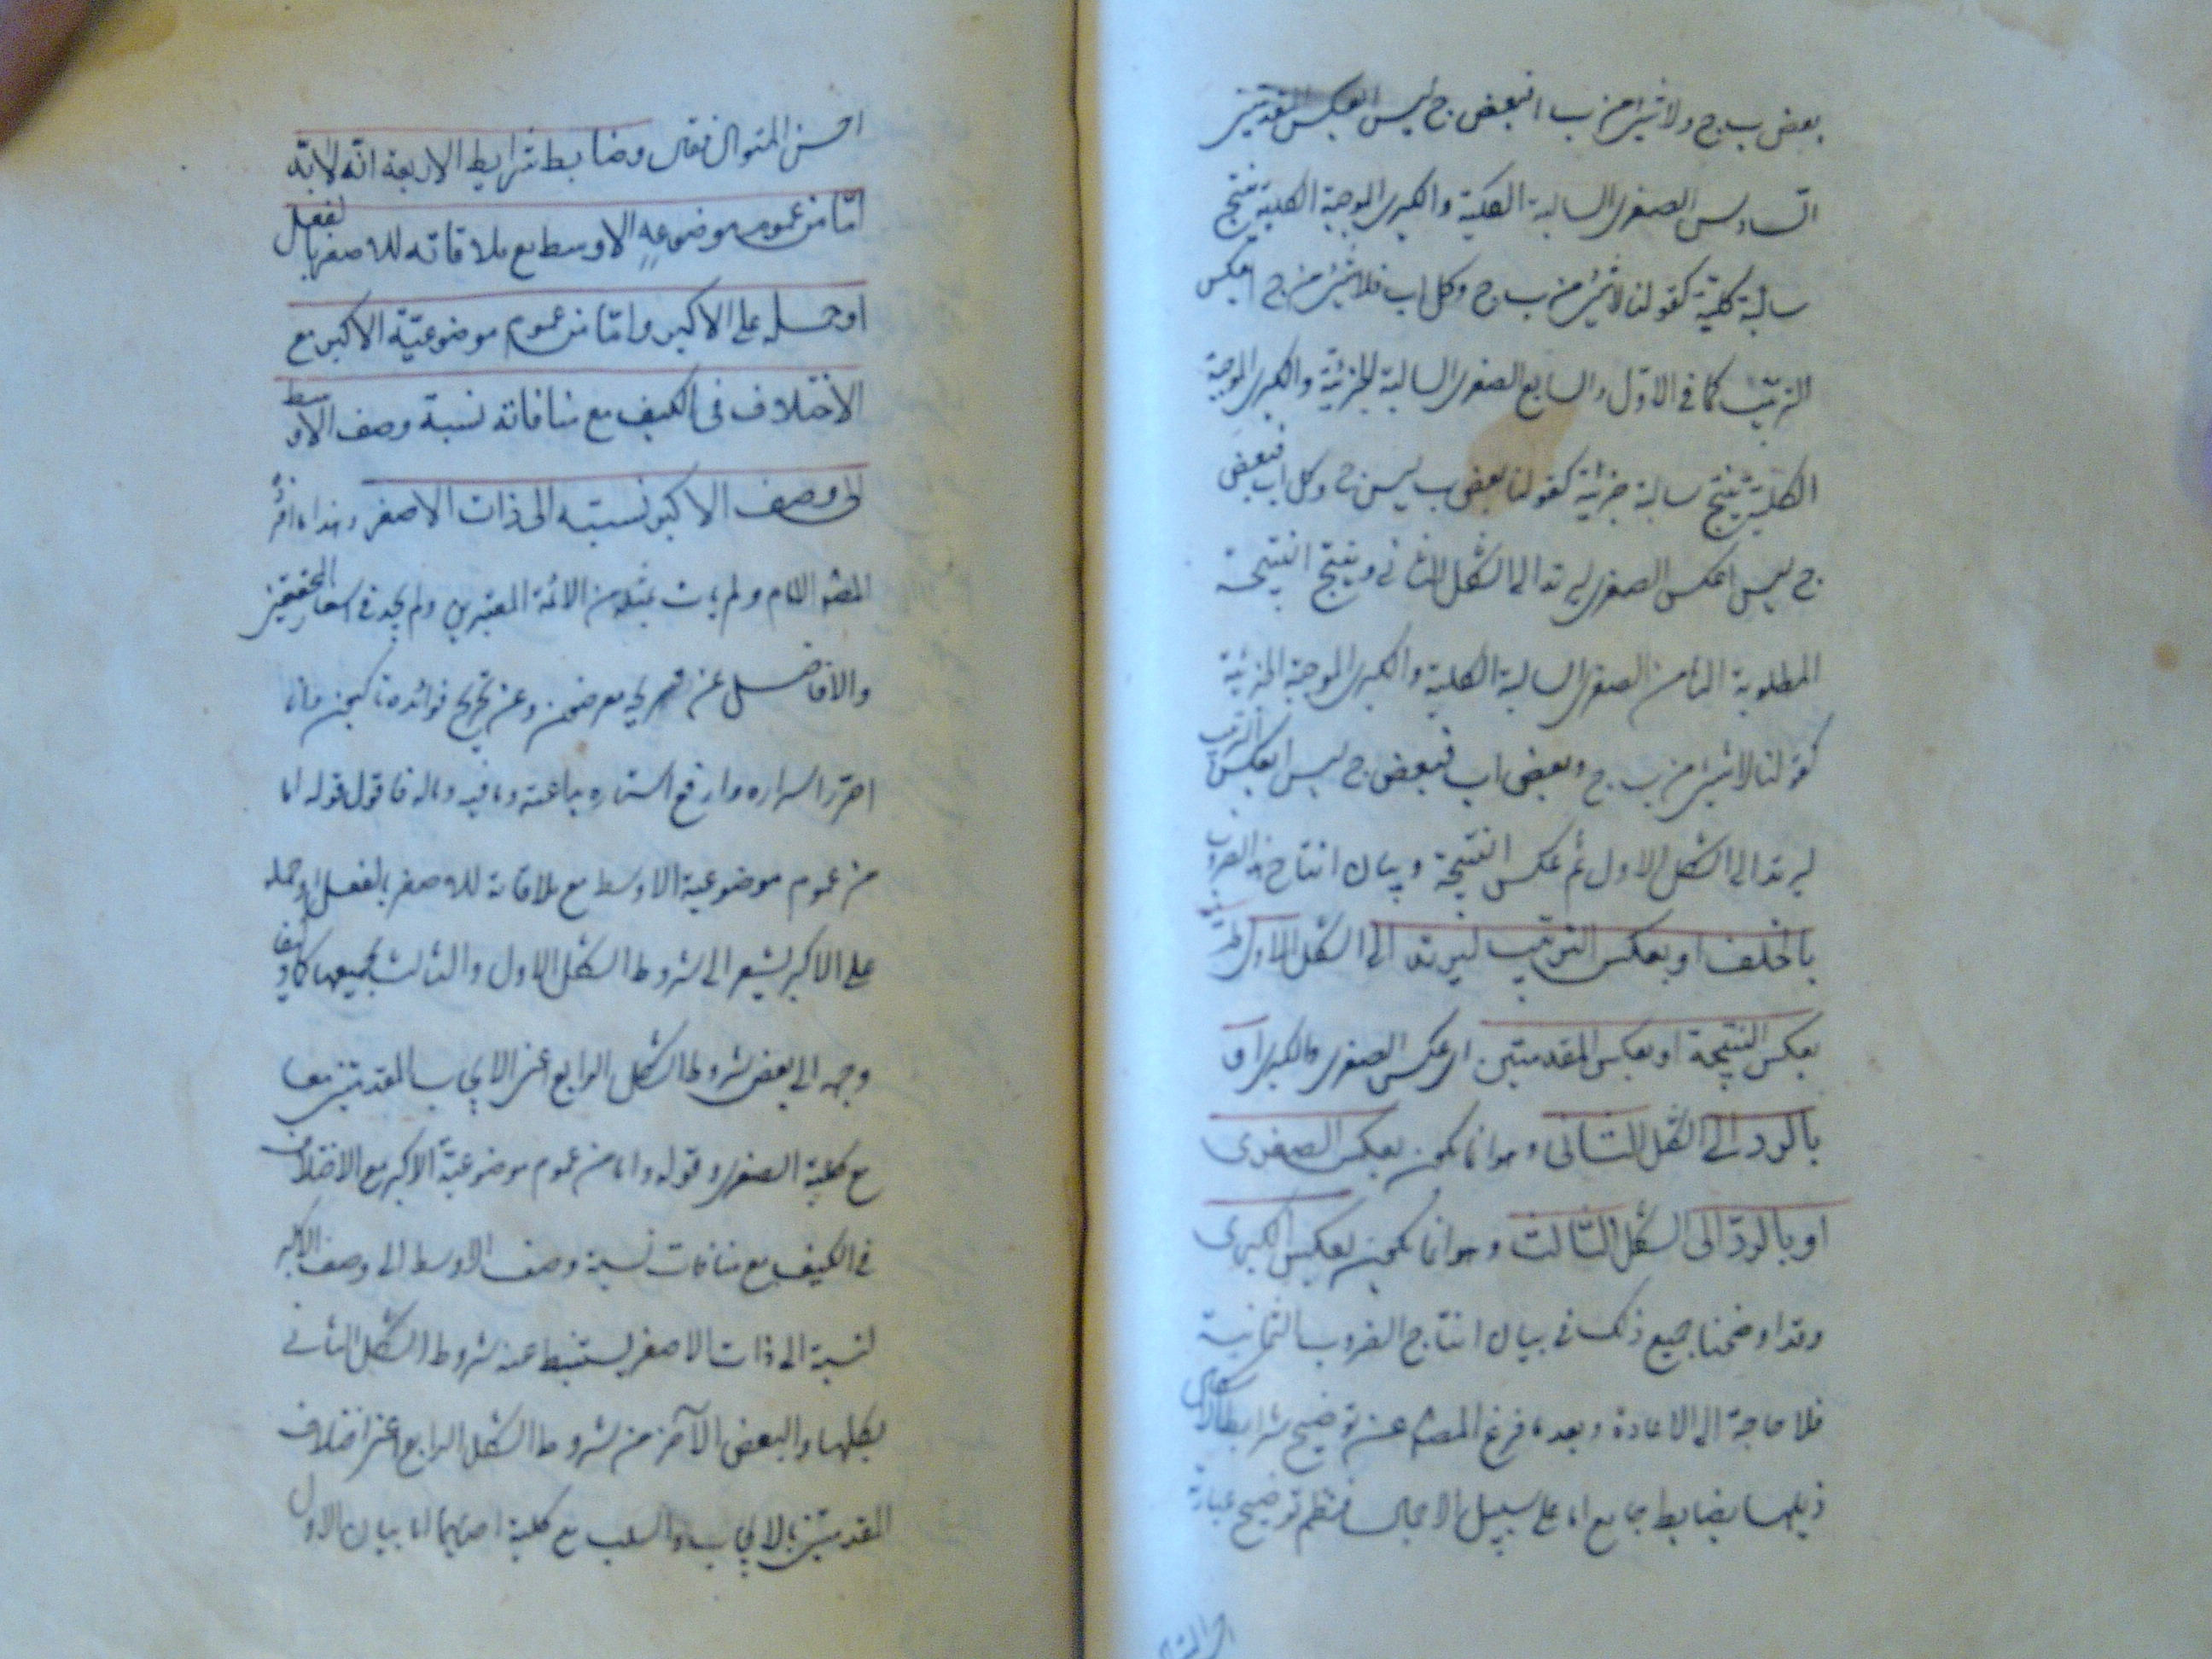 بعض ب ج ولا شئ من ب ا فبعض ج ليس ا بعكس المقدمتين
السادس الصغرى السالبة الكلية والكبرى الموجبة الكلية ينتج
سالبة كلية كقولنا لا شئ من ب ج وكل ا ب فلا شئ من ج ا بعكس
الترتيب كما فى الاول والسابع الصغرى السالبة الجزئية والكبرى الموجبة
الكلية ينتج سالبة جزئية كقولنا بعض ب ليس ج وكل ا ب فبعض
ج ليس ا بعكس الصغرى ليرتد الى الشكل الثانى وينتج النتيجة
المطلوبة الثامن الصغرى السالبة الكلية والكبرى الموجبة الجزئية
كقولنا لا شئ من ب ج وبعض ا ب فبعض ج ليس ا بعكس الترتيب
ليرتد الى الشكل الاول ثم عكس النتيجة وبيان انتاج هذه الضروب
بالخلف او بعكس الترتيب ليرتد الى الشكل الاول
بعكس النتيجة او بعكس المقدمتين اى عكس الصغرى والكبرى او
بالرد الى الشكل الثانى وهو انما يمكن بعكس الصغرى
او بالرد الى الشكل الثالث وهو انما يمكن بعكس الكبرى
وقد اوضحنا جميع ذلك فى بيان انتاج الضروب الثمانية
فلا حاجة الى الاعادة وبعد ما فرغ المصـ عن توضيح شرايط الاشكال
ذيلها بضابط جامع لها على سبيل الاجمال توضيح عبارة
احسن المنوال فقال وضابط شرايط الاربعة انه لا بد
اما من عموم موضوعية الاوسط مع ملاقاته للاصغر بالفعل
او حمله على الاكبر واما من عموم موضوعية الاكبر مع
الاختلاف فى الكيف مع منافاة نسبة وصف الاوسط
الى وصف الاكبر لنسبته الى ذات الاصغر وهذا ما
المصـ ولم يات بمثله من الائمة المعتبرين ولم يجد فى المحققين
والافاضل عن وعن فوائده
اسراره وارفع استاره وما فيه وما له فاقول قوله اما
من عموم موضوعية الاوسط مع ملاقاته للاصغر بالفعل او حمله
على الاكبر يشير الى شروط الشكل الاول والثالث بجميعها
وجه الى بعض شروط الشكل الرابع اعنى الايجاب المقدمتين معا
مع كلية الصغرى وقوله واما من عموم موضوعية الاكبر مع الاختلاف
فى الكيف مع منافات نسبة وصف الاوسط الى وصف الاكبر
لنسبة الى ذات الاصغر يستنبط عنه شروط الشكل الثانى
بكلها والبعض الآخر من شروط الشكل الرابع اعنى اختلاف
المقدمتين بالايجاب والسلب مع كلية احديهما اما بيان الاول